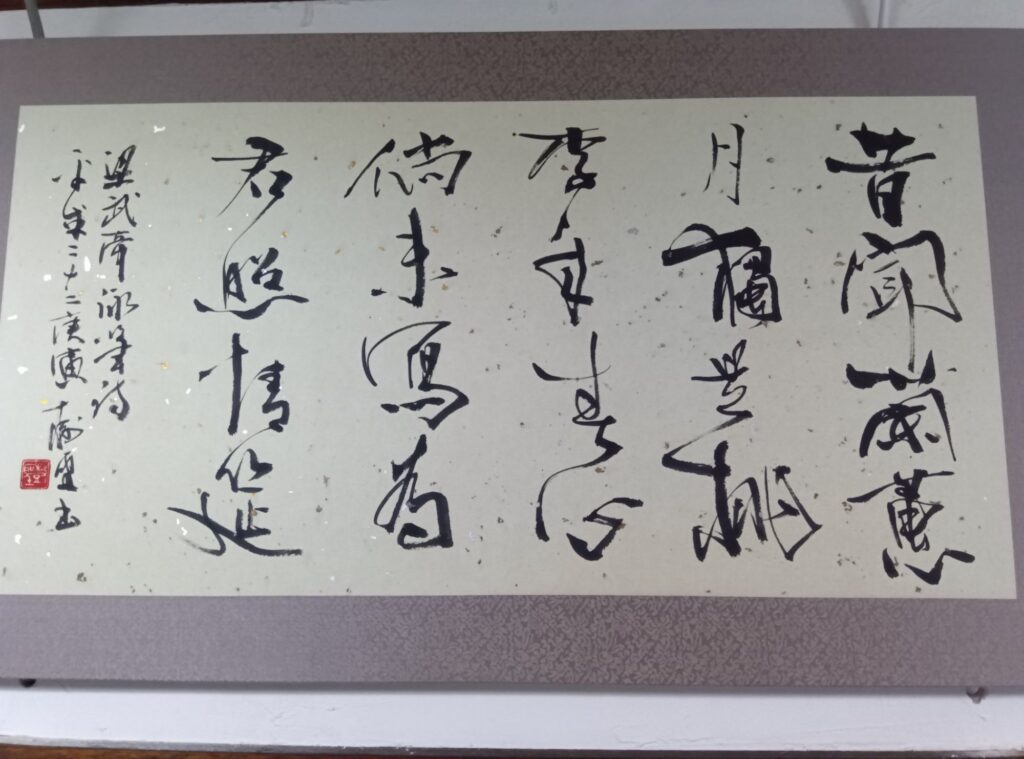 昔聞蘭蕙
月獨是桃
李年春心
倘未寫為
君照情筵
梁武帝詠筆詩
平成二十二庚寅